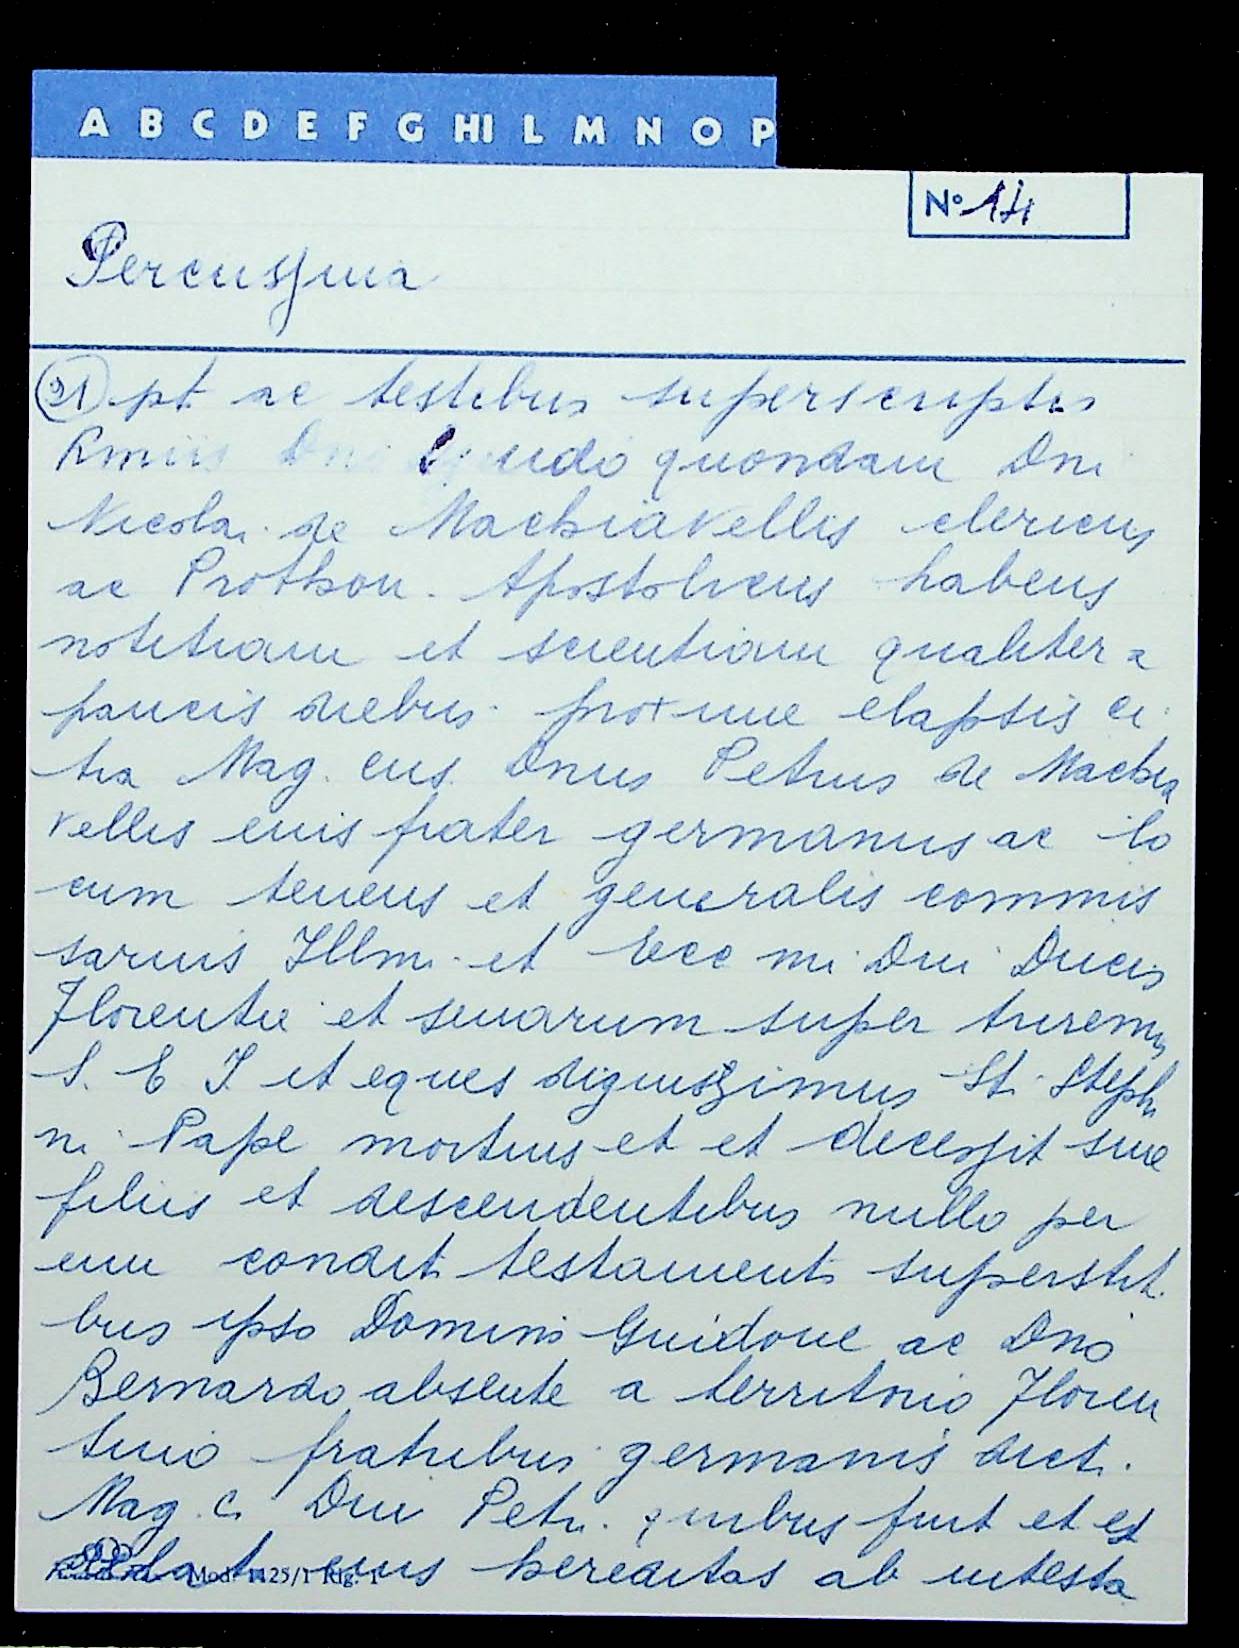 A B C D E F G HI L M N O P
N° 14
Percussina
pt. ac testibus superscriptis
Rmus Dn. quondam Dni
Nicolai de Machiavellis clericus
ac Prothon. Apostolicus habens
notitiam et scientiam qualiter a
paucis diebus proxime elapsis ci
tra Mag. cus Dnus Petrus de Machia
vellis eius frater germanus ac lo
cum tenens et generalis commis
sarius Illmi et Ecc mi Dni Ducis
Florentie et senarum super triremis
S. E I. et eques dignissimus Sti Steph
ni Pape mortuus et et decessit sine
filiis et descendentibus nullo per
eum condit testamento superstit.
bus ipso Domino Guidone ac Dno
Bernardo absente a territorio Floren
tino fratribus germanis dict.
Mag. ci Dni Petri quibus fuit et est
eius hereditas ab intesta
Mod. 1125/1 Rig. 1